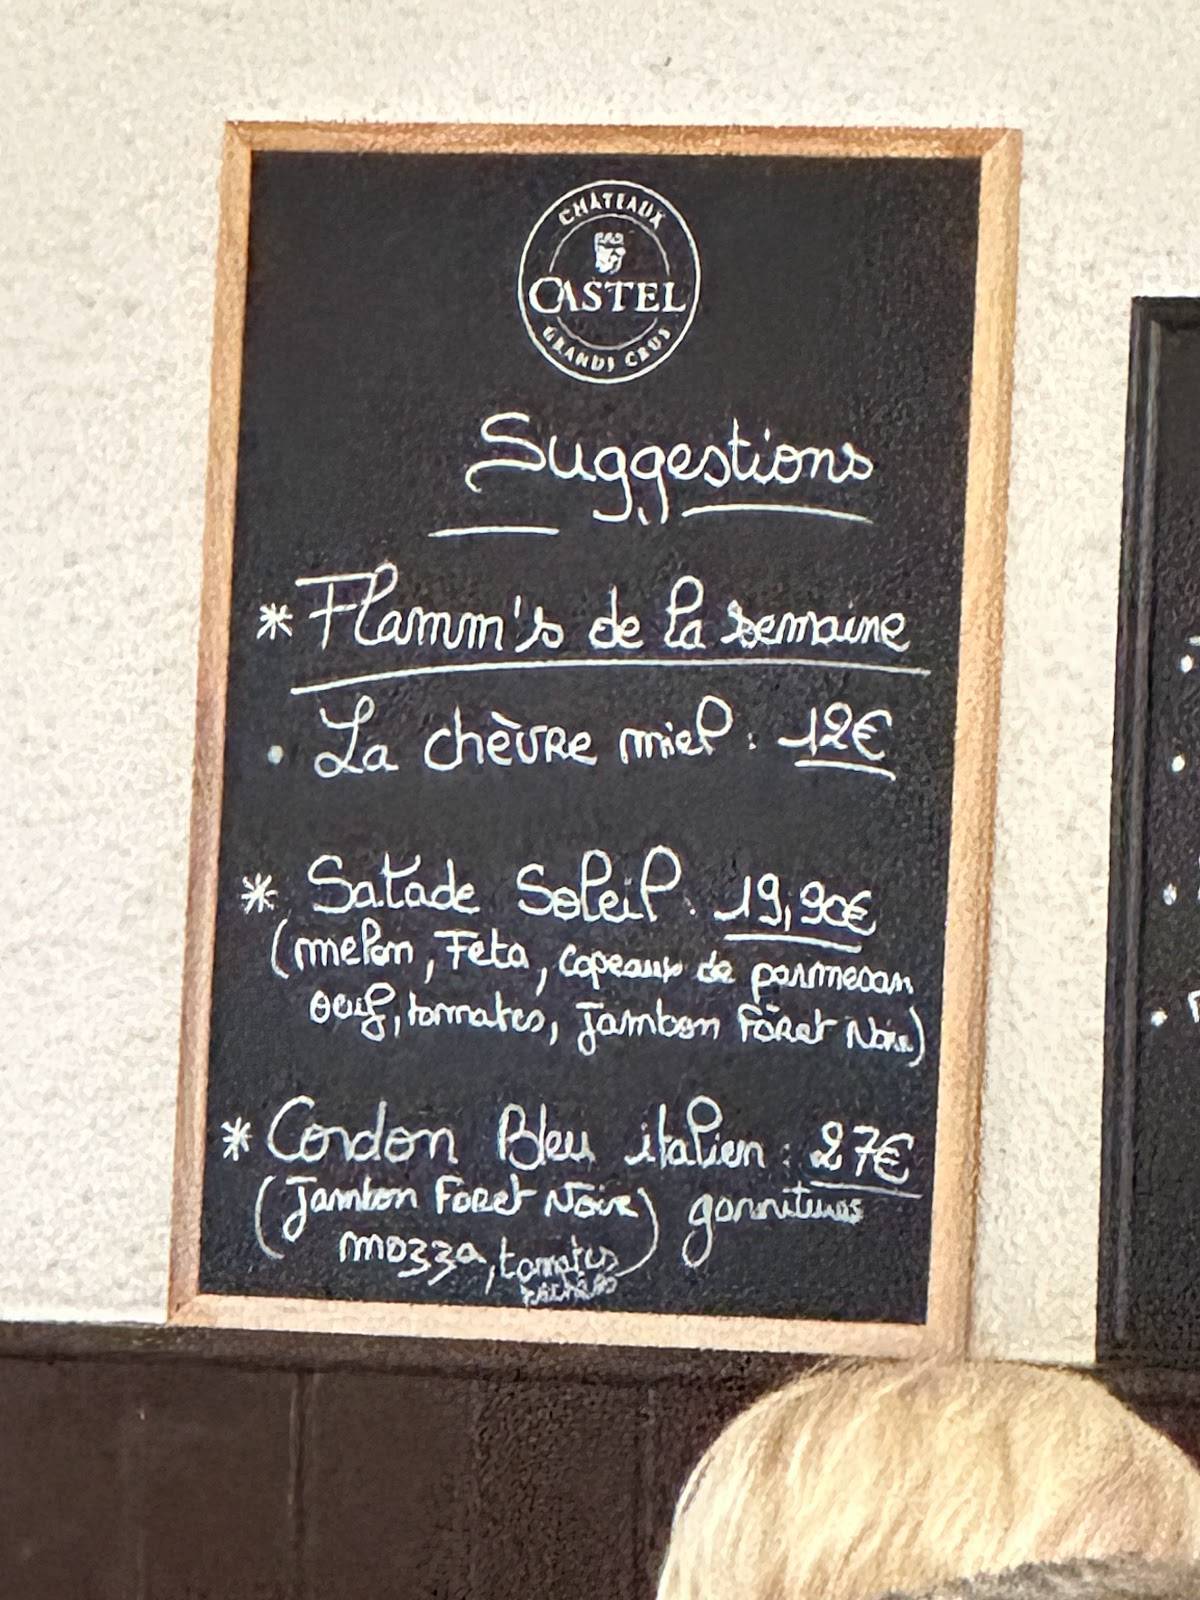 CHÂTEAUX
CASTEL
GRANDS CRUS
Suggestions
* Flamm's de la semaine
• La chèvre miel : 12€
* Salade Soleil : 19,90€
(melon, Feta, copeaux de parmesan
oeuf, tomates, Jambon Fôret Noire)
* Cordon Bleu italien : 27€
(Jambon Foret Noire) garnitures
mozza, tomates
séchées